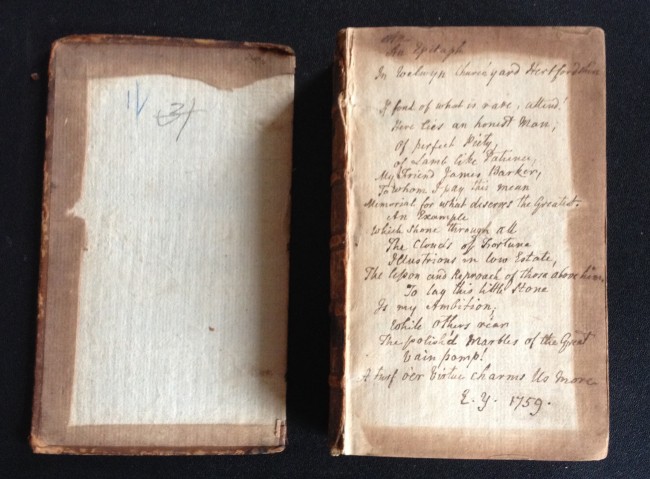 11
31
An Epitaph
In Welwyn Church yard Hertfordshire
If fond of what is rare, attend!
Here lies an honest Man;
Of perfect Piety,
Of Lamb like Patience,
My Friend James Barker,
To whom I pay this mean
Memorial for what deserves the Greatest.
An Example
Which Shone through all
The Clouds of Fortune
Illustrious in low Estate,
The lesson and Reproach of those above him,
To lay this little Stone
Is my Ambition,
While others rear
The polish'd Marbles of the Great
Vain pomp!
A turf o'er Virtue charms Us more
E. Y. 1759.